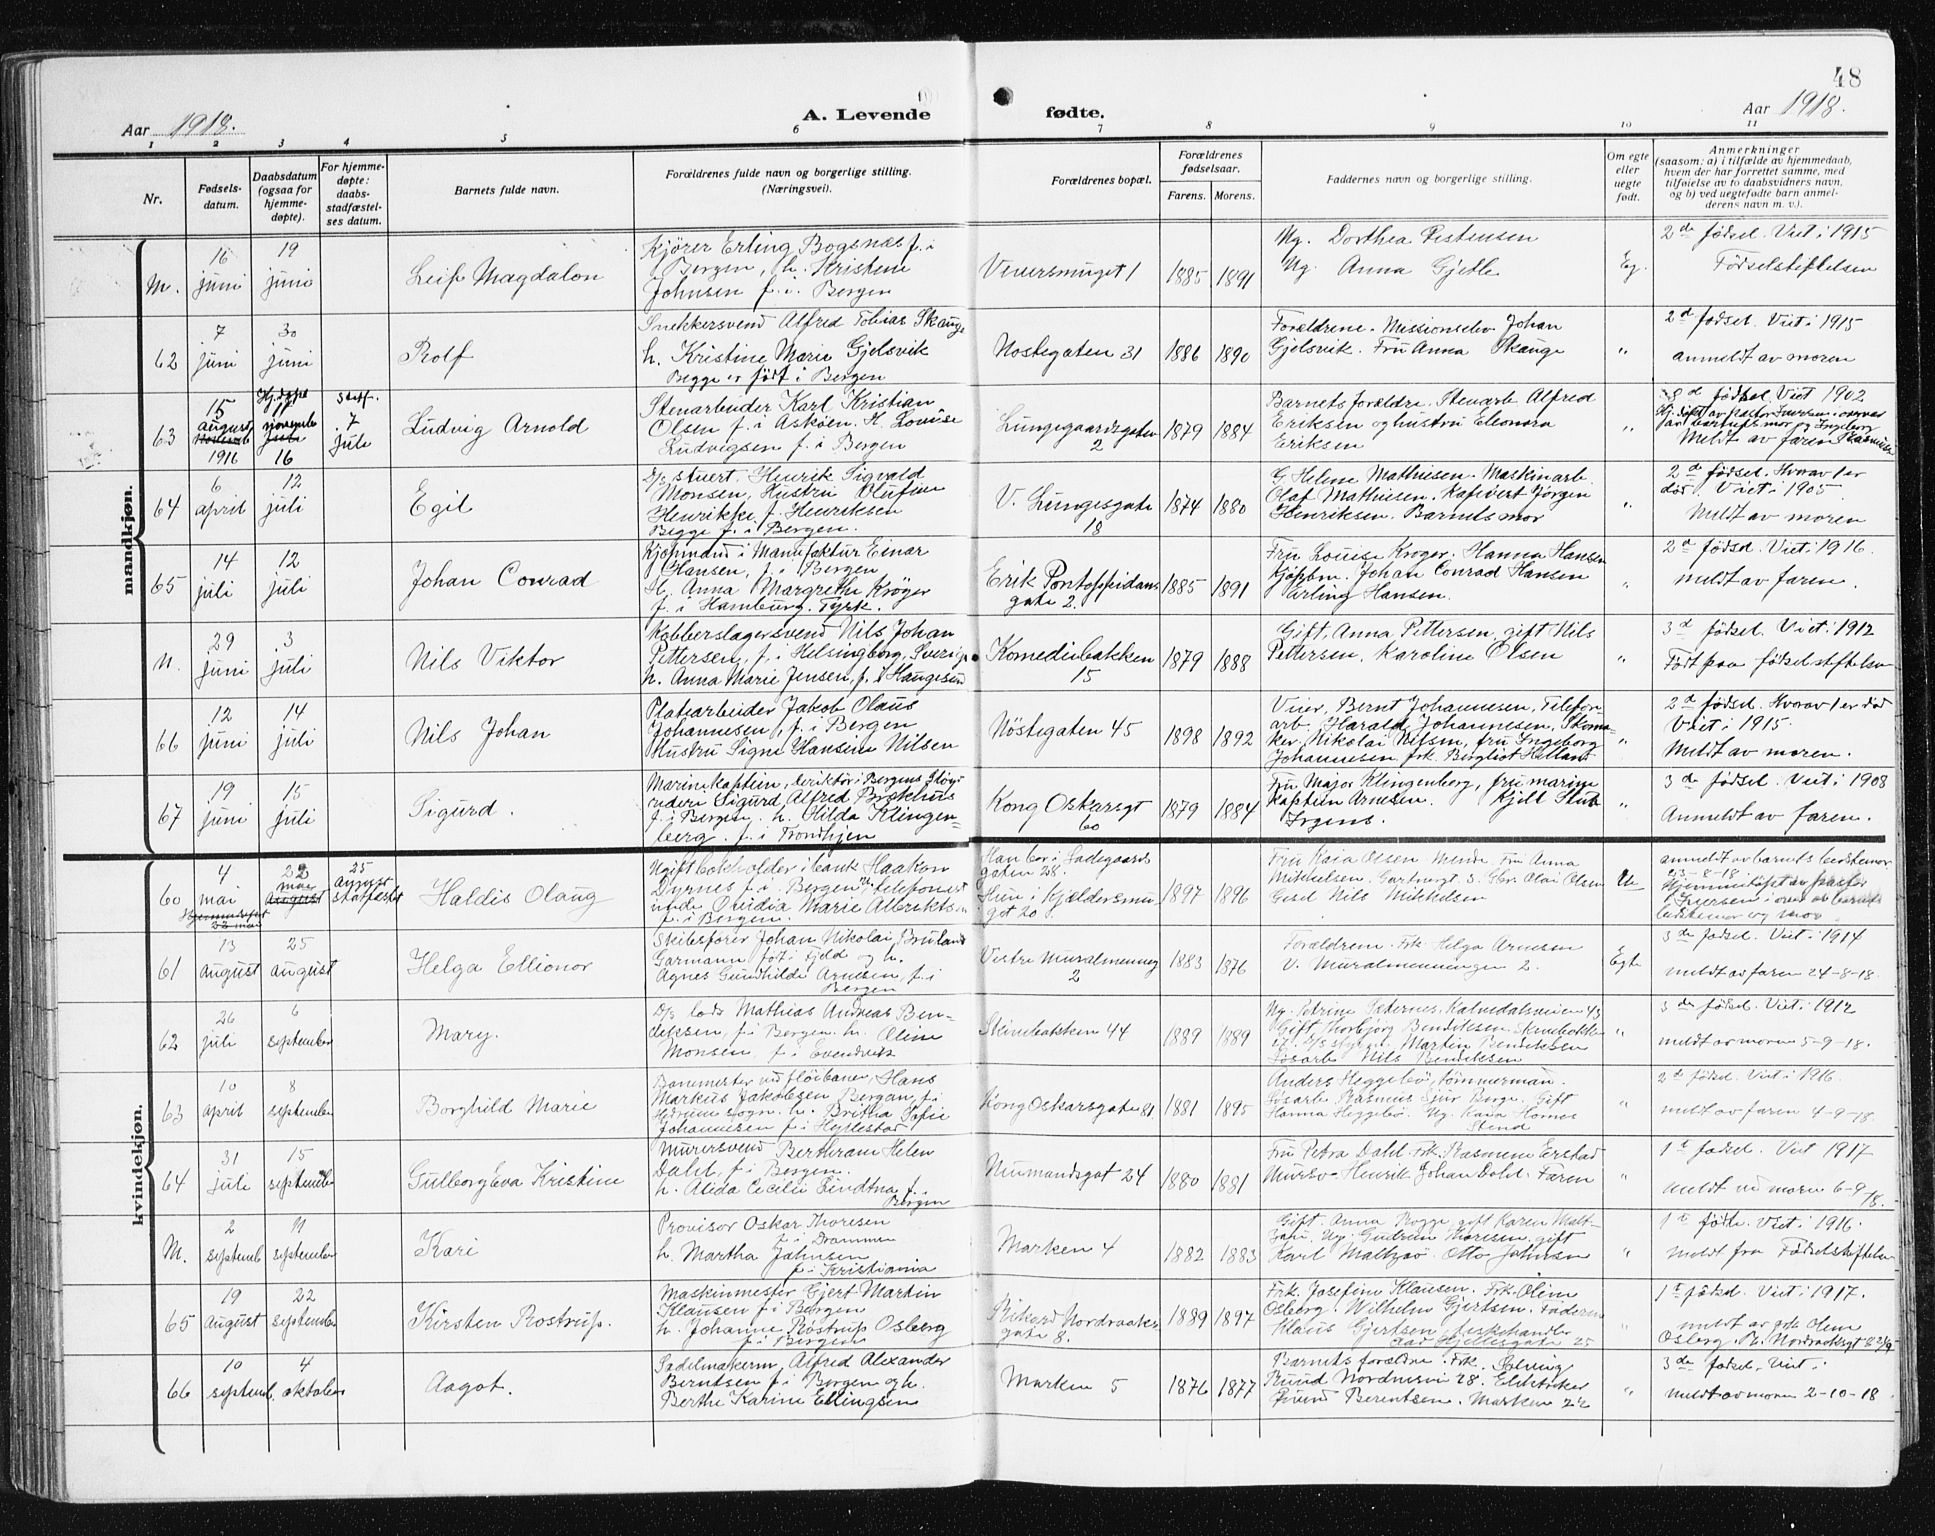 48
Aar 1918.
A. Levende fødte.
Aar 1918.
1 2 3 4 5 6 7 8 9 10 11
Nr.
Fødsels-
datum.
Daabsdatum
(ogsaa for
hjemme-
døpte).
For hjemme-
døpte:
daabs-
stadfæstel-
ses datum.
Barnets fulde navn.
Forældrenes fulde navn og borgerlige stilling.
(Næringsvei).
Forældrenes bopæl.
Forældrenes
fødselsaar.
Farens. Morens.
Faddernes navn og borgerlige stilling.
Om egte
eller
uegte
født.
Anmerkninger
(saasom: a) i tilfælde av hjemmedaab,
hvem der har forrettet samme, med
tilføielse av to daabsvidners navn,
og b) ved uegtefødte barn anmel-
derens navn m. v.).
mandkjøn.
M.
16
juni
19
juni
Leif Magdalon
Kjører Erling Bogsnæs f. i
Bergen, h. Kristine
Johnsen f. i. Bergen
Veiersmuget 1
1885 1891
Ug. Dorthea Pistensen
Ug. Anna Gjetle
Eg.
2de fødsel. Viet i 1915
Fødselstiftelsen
62
7
juni
30
juni
Rolf
Snekkersvend Alfred Tobias Skauge
h. Kristine Marie Gjelsvik
Begge er født i Bergen
Nostegaten 31
1886 1890
Forældrene. Missionselev Johan
Gjelsvik. Fru Anna Skauge
"
2d fødsel. Viet i 1915
anmeldt av moren
63
15
august
1916
Hj.døpt
11
november
16
Staf.
7
jule
Ludvig Arnold
Stenarbeider Karl Kristian
Olsen f. i Askøen. H. Louise
Ludvigsen f. i Bergen
Lungegaardsgaten
2
1879 1884
Barnets forældre. Stenarb Alfred
Eriksen og hustru Eleonora
Eriksen
"
8d fødsel Viet 1902
Hj. døpt av pastor Iversen. overvar
Meldt av faren
64
6
april
12
juli
Egil
D/s stuert. Henrik Sigvald
Monsen, Hustru Olufine
Henrikke f. Henriksen
Begge f. i Bergen.
V. Lungesgate
18
1874 1880
G Helene Mathiesen. Maskinarb.
Olaf Mathiesen. Kafevert Jørgen
Henriksen. Barnets mor
"
2d fødsel. Hvorav 1 er
død. Viet i 1905.
Meldt av moren
65
14
juli
12
juli
Johan Conrad
Kjøpmand i Manufaktur Einar
Hansen, f. i Bergen
H. Anna Margrethe Krøger
f. i Hamburg. Tysk.
Erik Pontoppidans
gate 2.
1885 1891
Fru Louise Krøger. Hanna Hansen
Kjøpm. Johan Conrad Hansen
Erling Hansen.
"
2d fødsel. Viet: 1916.
meldt av faren.
N.
29
juni
3
juli
Nils Viktor
Kobberslagersvend Nils Johan
Pettersen, f. i Helsingborg, Sverige
h. Anna Marie Jensen, f. i Haugesund
Komediebakken
15
1879 1888
Gift, Anna Pettersen, gift Nils
Pettersen, Karoline Olsen
"
3d fødsel. Viet: 1912
Født paa fødselstiftelsen
66
12
juni
14
juli
Nils Johan
Platearbeider Jakob Olaus
Johannesen, f. i Bergen
Hustru Signe Hansine Nilsen
Nöstegaten 45
1898 1892
Vier, Bernt Johannesen, Telefon-
arb. Harald Johannesen, Skoma-
ker, Nikolai Nilsen, fru Ingeborg
Johannesen, frk. Bergliot Helland
"
2d fødsel. Hvorav 1 er död
Viet i 1915.
Meldt av moren.
67
19
juni
15
juli
Sigurd.
Marinekaptein, direktør i Bergens Støv-
Sigurd, Alfred Brekhus
f. i Bergen. h. Hilda Klingen-
berg. f. i Trondhjem
Kong Oskarsgt
60
1879 1884
Fru Major Klingenberg, fru marine
kaptein Arnesen. Kjell Stub
Irgens.
"
3de fødsel. Viet i 1908
Anmeldt av faren.
kvindekjøn.
60
4
mai
22
mai
august
25
august
stadfæstet
Haldis Olaug
Ugift bokholder i bank Haakon
Dyrnes f. i Bergen og telefonist
Ovidia Marie Albriktsen
f. i Bergen.
Han bor i Ladegaards
gaten 28.
Hun i Kjeldersmu-
get 20.
1897 1896
Fru Kaia Olsen Minde Fru Anna
Mikkelsen. Gartnergt 3. Gbr. Olai Olsen
Gesel Nils Mikkelsen
Ue
anmeldt av barnets bestemor
23-8-18.
Hjemmedøpt av pastor
Iversen i
bestemor og mor
61
13
august
25
august
Helga Ellionor
Skibsfører Johan Nikolai Bruland
Garmann født Fjeld og h.
Agnes Gunhilde Arnesen, f. i
Bergen
Vestre Muralmenning
2
1883 1876
Forældrene. Frk. Helga Arnesen
V. Muralmenningen 2.
Egte
3de fødsel. Viet i 1914
meldt av faren 24-8-18.
62
26
juli
6
september
Mary.
D/s lods Mathias Andreas Ben-
diksen, f. i Bergen. h. Oline
Monsen f. i Evendvik
Skivebakken 44
1889 1889
Ug. Petrine Kalvedalsveien 43
Gift, Thorbjørg Bendiksen. Skivebakken
Martin Bendiksen
Løsarb Nils Bendiksen
"
3de fødsel. Viet i 1912
meldt av moren 5-9-18.
63
10
april
8
september
Borghild Marie
Banemester ved fløibanen, Hans
Markus Jakobsen Bergan, f. i
sogn. h. Britha Sofie
Johannesen f. i Hyllestad
Kong Oskarsgate 81
1881 1895
Anders Heggebö, tømmermann.
Løsarb Rasmus Sjur Berge. Gift
Hanna Heggebö. Ug. Kaia Hornes
Stend
"
2d fødsel. Viet i 1916.
meldt av faren 4-9-18.
64
31
juli
15
september
Gulborg Eva Kristine
Murersvend Berthram Helen
Dahl, f. i Bergen.
h. Alida Cecilie f. i
Bergen
Neumandsgat 24
1880 1881
Fru Petra Dahl. Frk. Rasmine Erstad
Mursv. Henrik Johan Dahl. Faren
"
1te fødsel. Viet 1917
meldt ved moren 6-9-
18.
M.
2
septemb
11
september
Kari
Provisor Oskar Thoresen
f. i Drammen
h. Martha Johnsen
f. i Kristiania
Marken 4
1882 1883
Gift. Anna Rogge, gift Karen
Ug. Gudrun Thoresen, gift
Karl Otto Johnsen
"
1te føds. Viet i 1916.
meldt fra Fødselstiftelsen
65
19
August
22
september
Kirsten Rostrup.
Maskinmester Gjert Martin
Klausen f. i Bergen
h. Johanne Rostrup Osberg
f. i Bergen
Rikard Nordraaks
gate 8.
1889 1897
Frk. Josefine Klausen. Frk. Oline
Osberg. Wilhelm Gjertsen.
Klaus Gjertsen, fiskehandler
25
"
1te fødsel. Viet i 1917.
meldt av frk Oline
Osberg. R. Nordraaksgt 8 21/9
66
10
septemb.
4
oktober
Aagot.
Sadelmakerm. Alfred Alexander
Berntsen f. i Bergen og h.
Berthe Karine Ellingsen
Marken 5
1876 1877
Barnets forældre. Frk. Solveig
Ruud Nordnesvei 28. Elektriker
Øivind Berentsen. Marken 22
"
3de fødsel. Viet i
meldt av moren 2-10-18